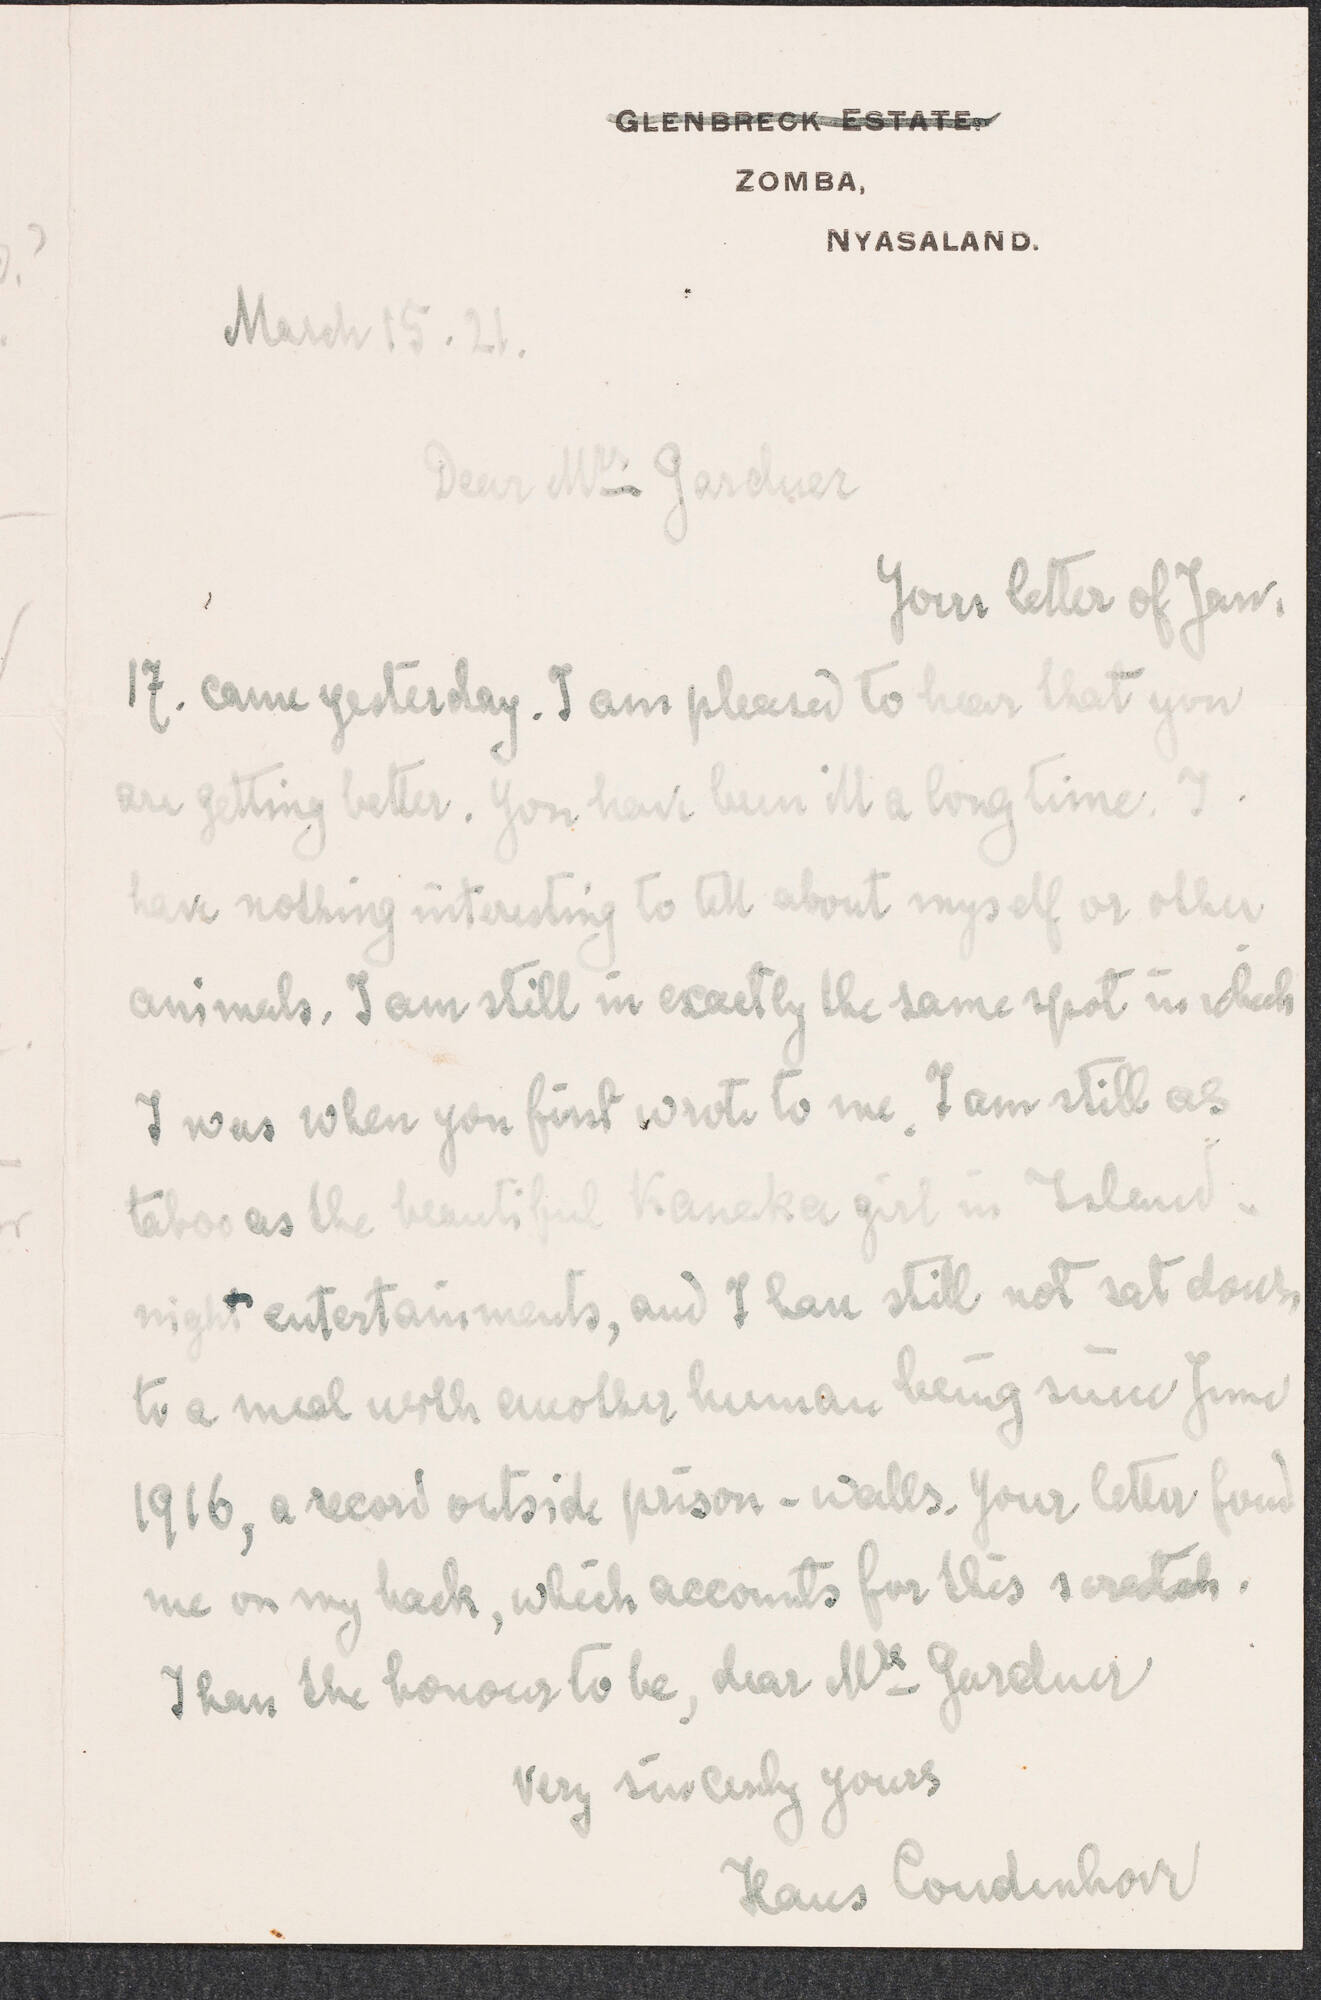 GLENBRECK ESTATE.
ZOMBA,
NYASALAND.
March 15. 21.
Dear Mrs Gardner
Your letter of Jan.
17. came yesterday. I am pleased to hear that you
are getting better. You have been ill a long time. I
have nothing interesting to tell about myself or other
animals. I am still in exactly the same spot in which
I was when you first wrote to me. I am still as
taboo as the beautiful Kanaka girl in Island-
night entertainments, and I have still not sat down
to a meal with another human being since June
1916, a record outside prison-walls. Your letter found
me on my back, which accounts for this scratch.
I have the honour to be, dear Mrs Gardner
very sincerely yours
Hans Coudenhove